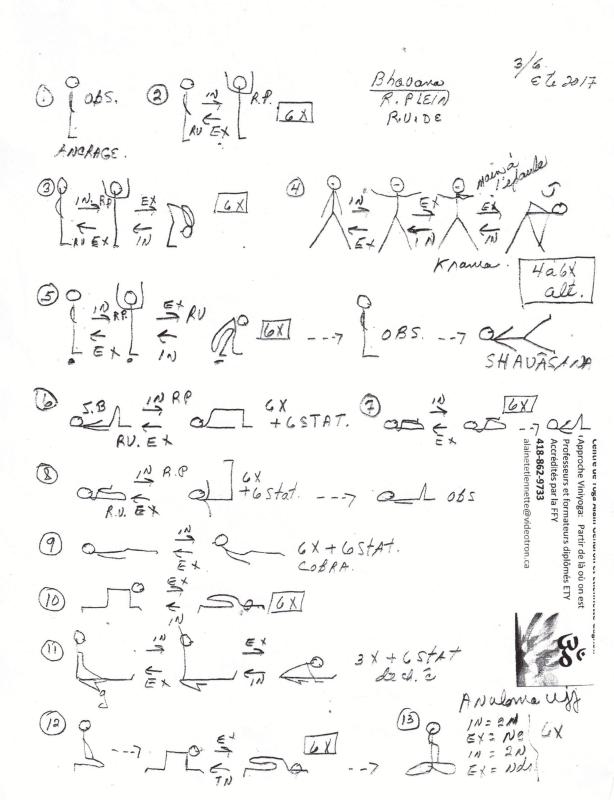 3/6
Eté 2017
Bhavana
R. PLEIN
R. VIDE
① OBS.
ANCRAGE.
② IN R.P.
RV EX
6X
③ IN. R.P. EX
RV EX IN
6X
④ IN EX main à l'épaule EX
EX IN IN
Krama.
4 à 6X
alt.
⑤ IN R.P. EX RV
EX IN
6X
OBS.
SHAVÂSANA
⑥ S.B IN RP
RV. EX
6X
+ 6 STAT.
⑦ IN
EX
6X
⑧ IN R.P
R.V. EX
6X
+ 6 Stat.
OBS
⑨ IN
EX.
6X + 6 STAT.
COBRA.
⑩ EX
IN
6X
⑪ IN IN EX
EX IN
3X + 6 STAT
dz ch. c
g
⑫ EX
IN
6X
⑬ Anuloma Ujj
IN = 2N
EX = Ng
IN = 2N
EX = Ndr
6X
Approche Viniyoga: Partir de là où on est
Professeurs et formateurs diplômés ETY
Accrédités par la FFY
418-862-9733
alainetetiennette@videotron.ca
ॐ